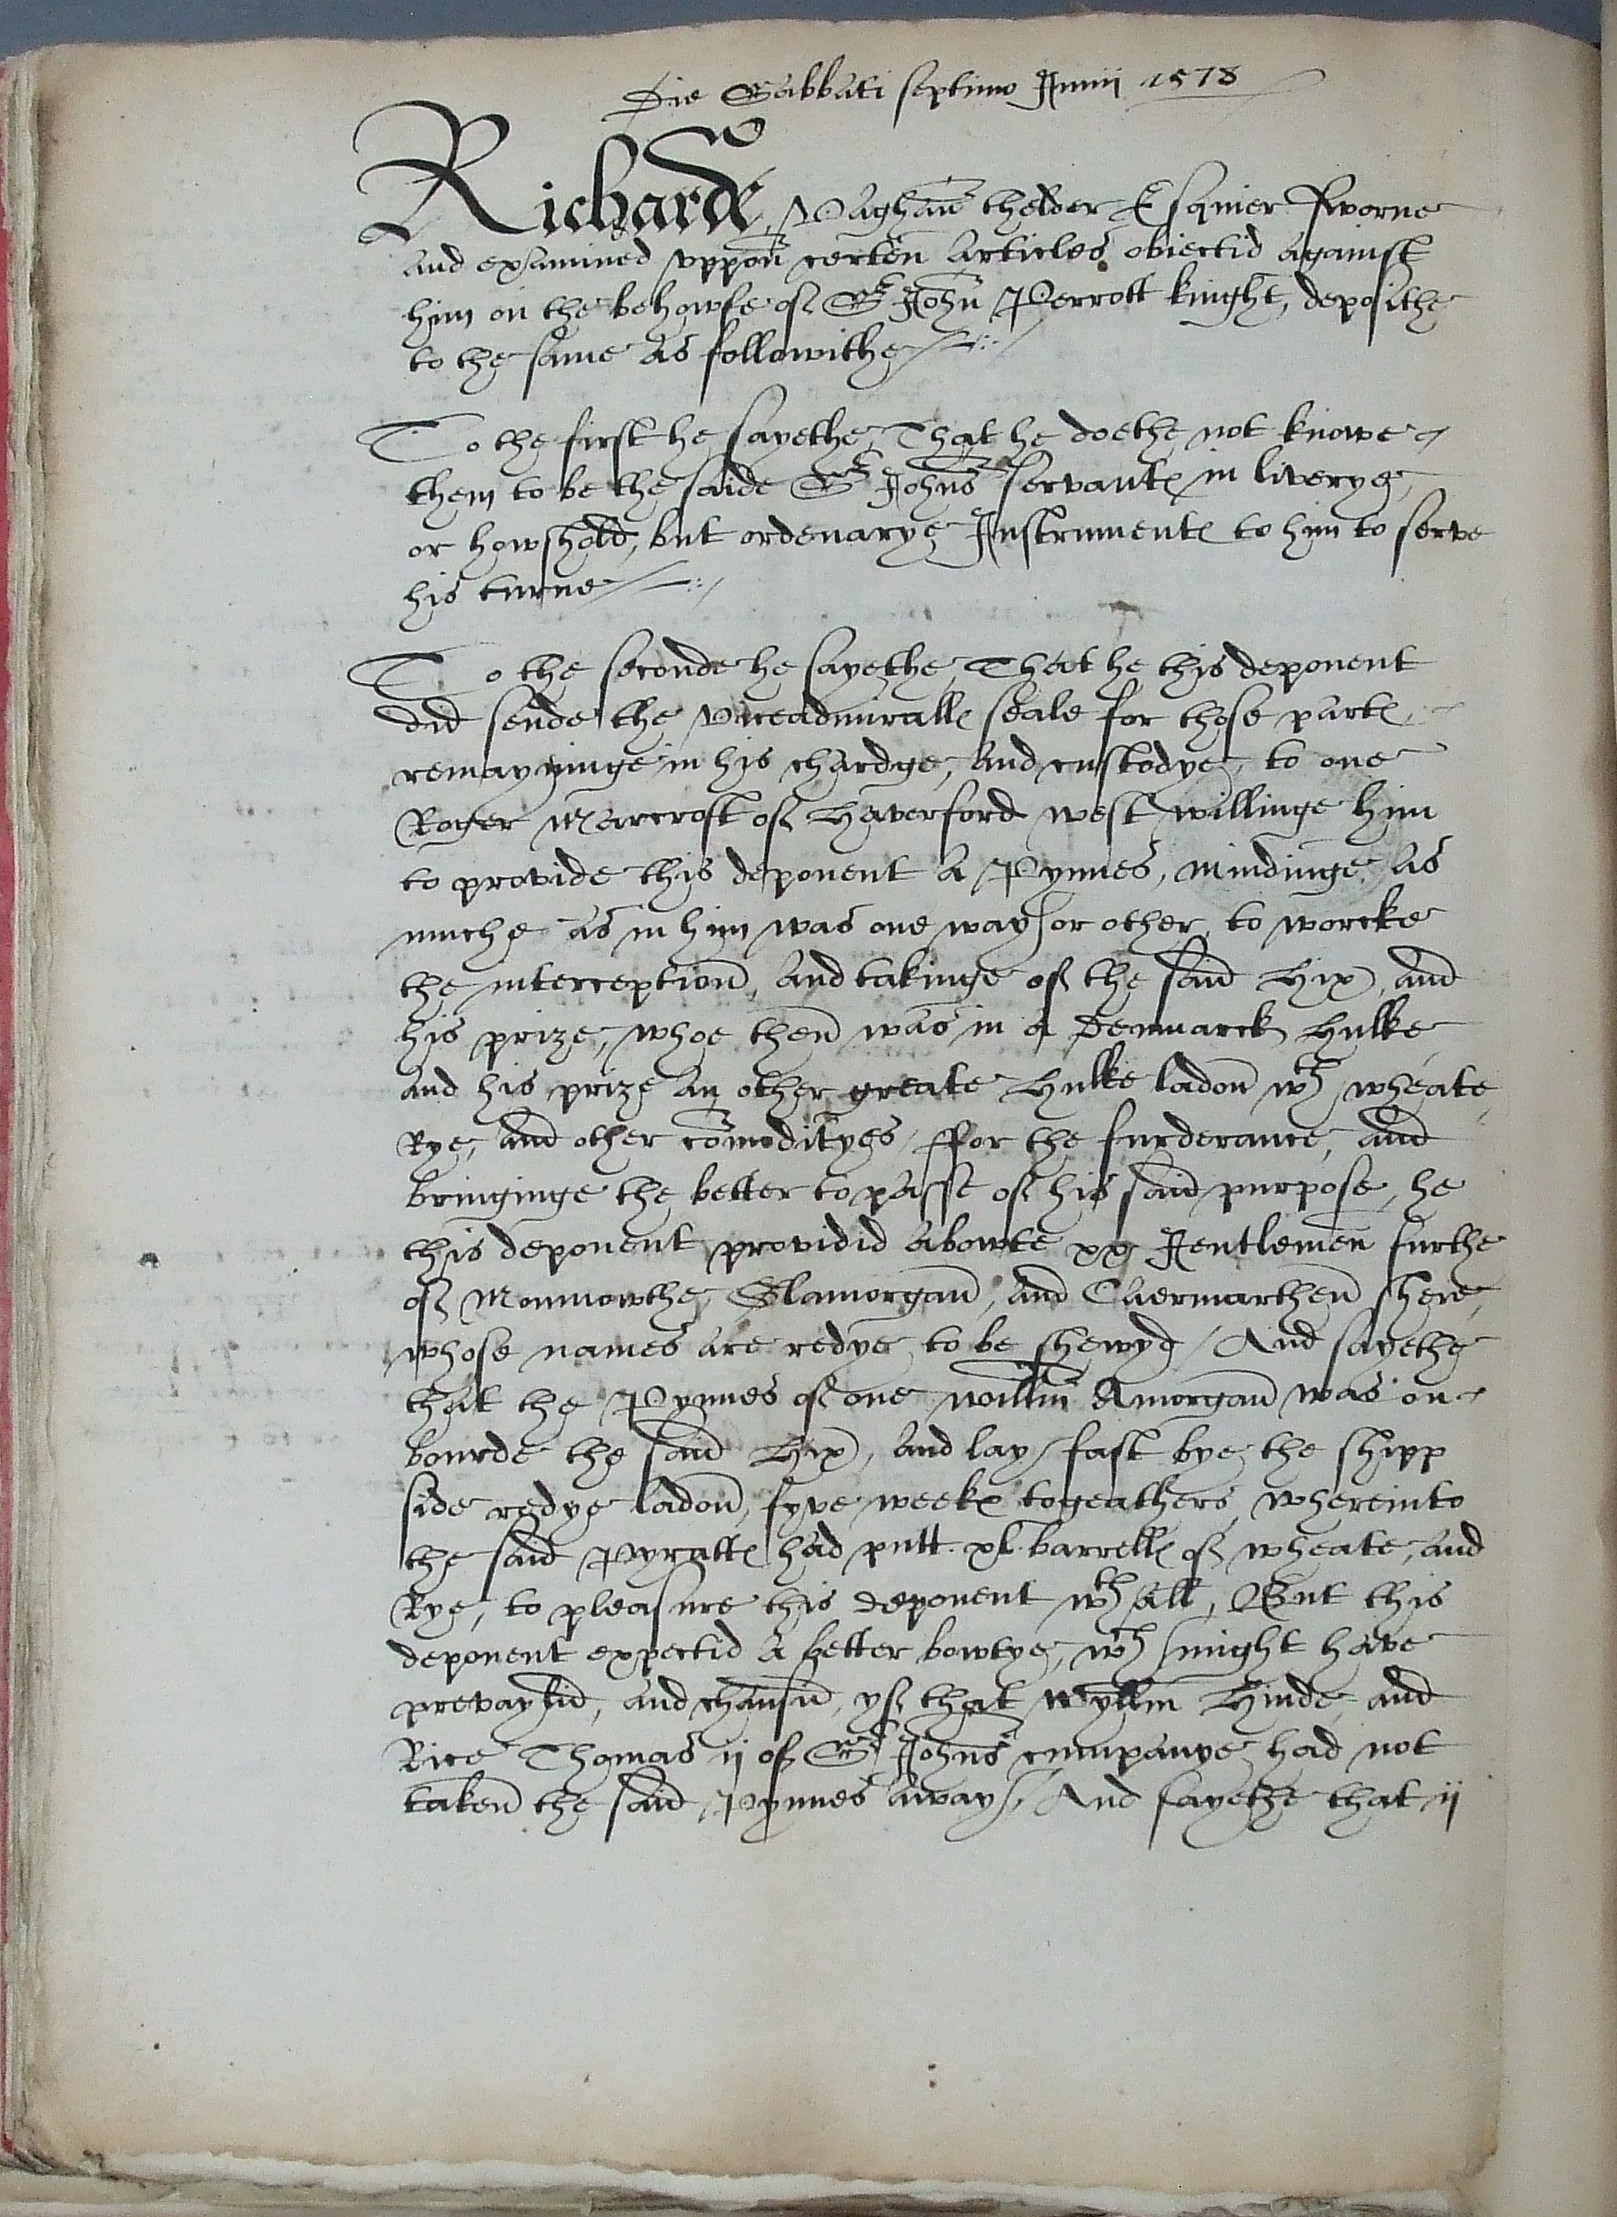 Die Sabbati septimo Junii 1578
Richarde Vaghan thelder Esquier sworne
and examined uppon certen Articles obiectid against
him on the behowfe of Sr John Perrott knight, deposithe
to the same as followithe
To the first he sayethe, That he doethe not knowe
them to be the saide Sr Johns servantes in liverye,
or howshold, but ordenarye Instrumentes to him to serve
his turne
To the seconde he sayethe, That he this deponent
did sende the viceadmiralles seale for those partes
remayninge in his chardge, and custodye, to one
Roger Marcrost of Haverford west willinge him
to provide this deponent a Pynnes, mindinge as
muche as in him was one way or other, to worcke
the interception, and takinge of the said Hix, and
his prize, whoe then was in a Denmarck Hulke
and his prize an other greate Hulke ladon wth wheate
Rye, and other comodityes, ffor the furderance, and
bringinge the better to passe of his said purpose, he
this deponent providid abowte xx Jentlemen furthe
of Monmowthe, Glamorgan, and Caermarthen shere,
whose names are redye to be shewyd / And sayethe
that the Pynnes of one Willm Amorgan was on
bourde the said Hix, and lay fast bye the shipp
side redye ladon, fyve weekes togeathers, whereinto
the said Pyrattes had putt xl barrelles of wheate, and
Rye, to pleasure this deponent wth all, But this
deponent expectid a better bowtye, wch might have
prevaylid, and chansid, yf that Wyllm Hinde, and
Rice Thomas ij of Sr Johns cumpanye had not
taken the said Pynnes away, And sayethe that ij